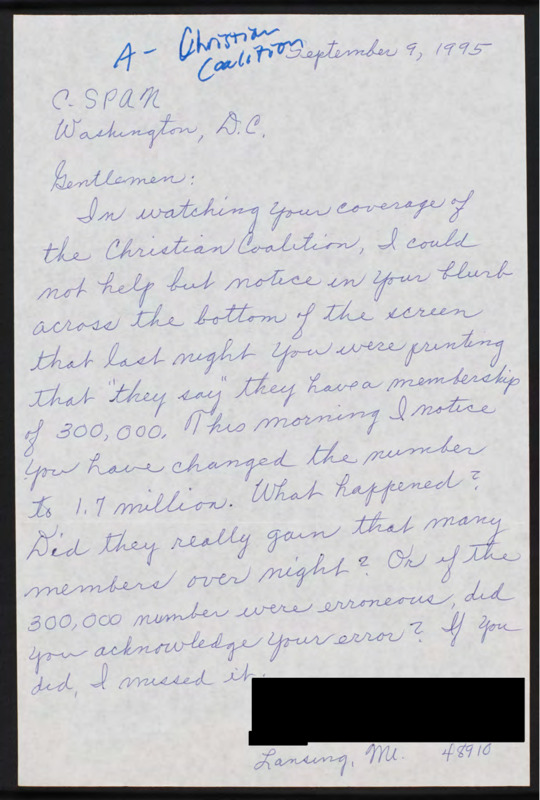 A - Christian
Coalition
September 9, 1995
C-SPAN
Washington, D.C.
Gentlemen:
In watching your coverage of
the Christian Coalition, I could
not help but notice in your blurb
across the bottom of the screen
that last night you were printing
that "they say" they have a membership
of 300,000. This morning I notice
you have changed the number
to 1.7 million. What happened?
Did they really gain that many
members over night? Or if the
300,000 number were erroneous, did
you acknowledge your error? If you
did, I missed it.
Lansing, MI. 48910